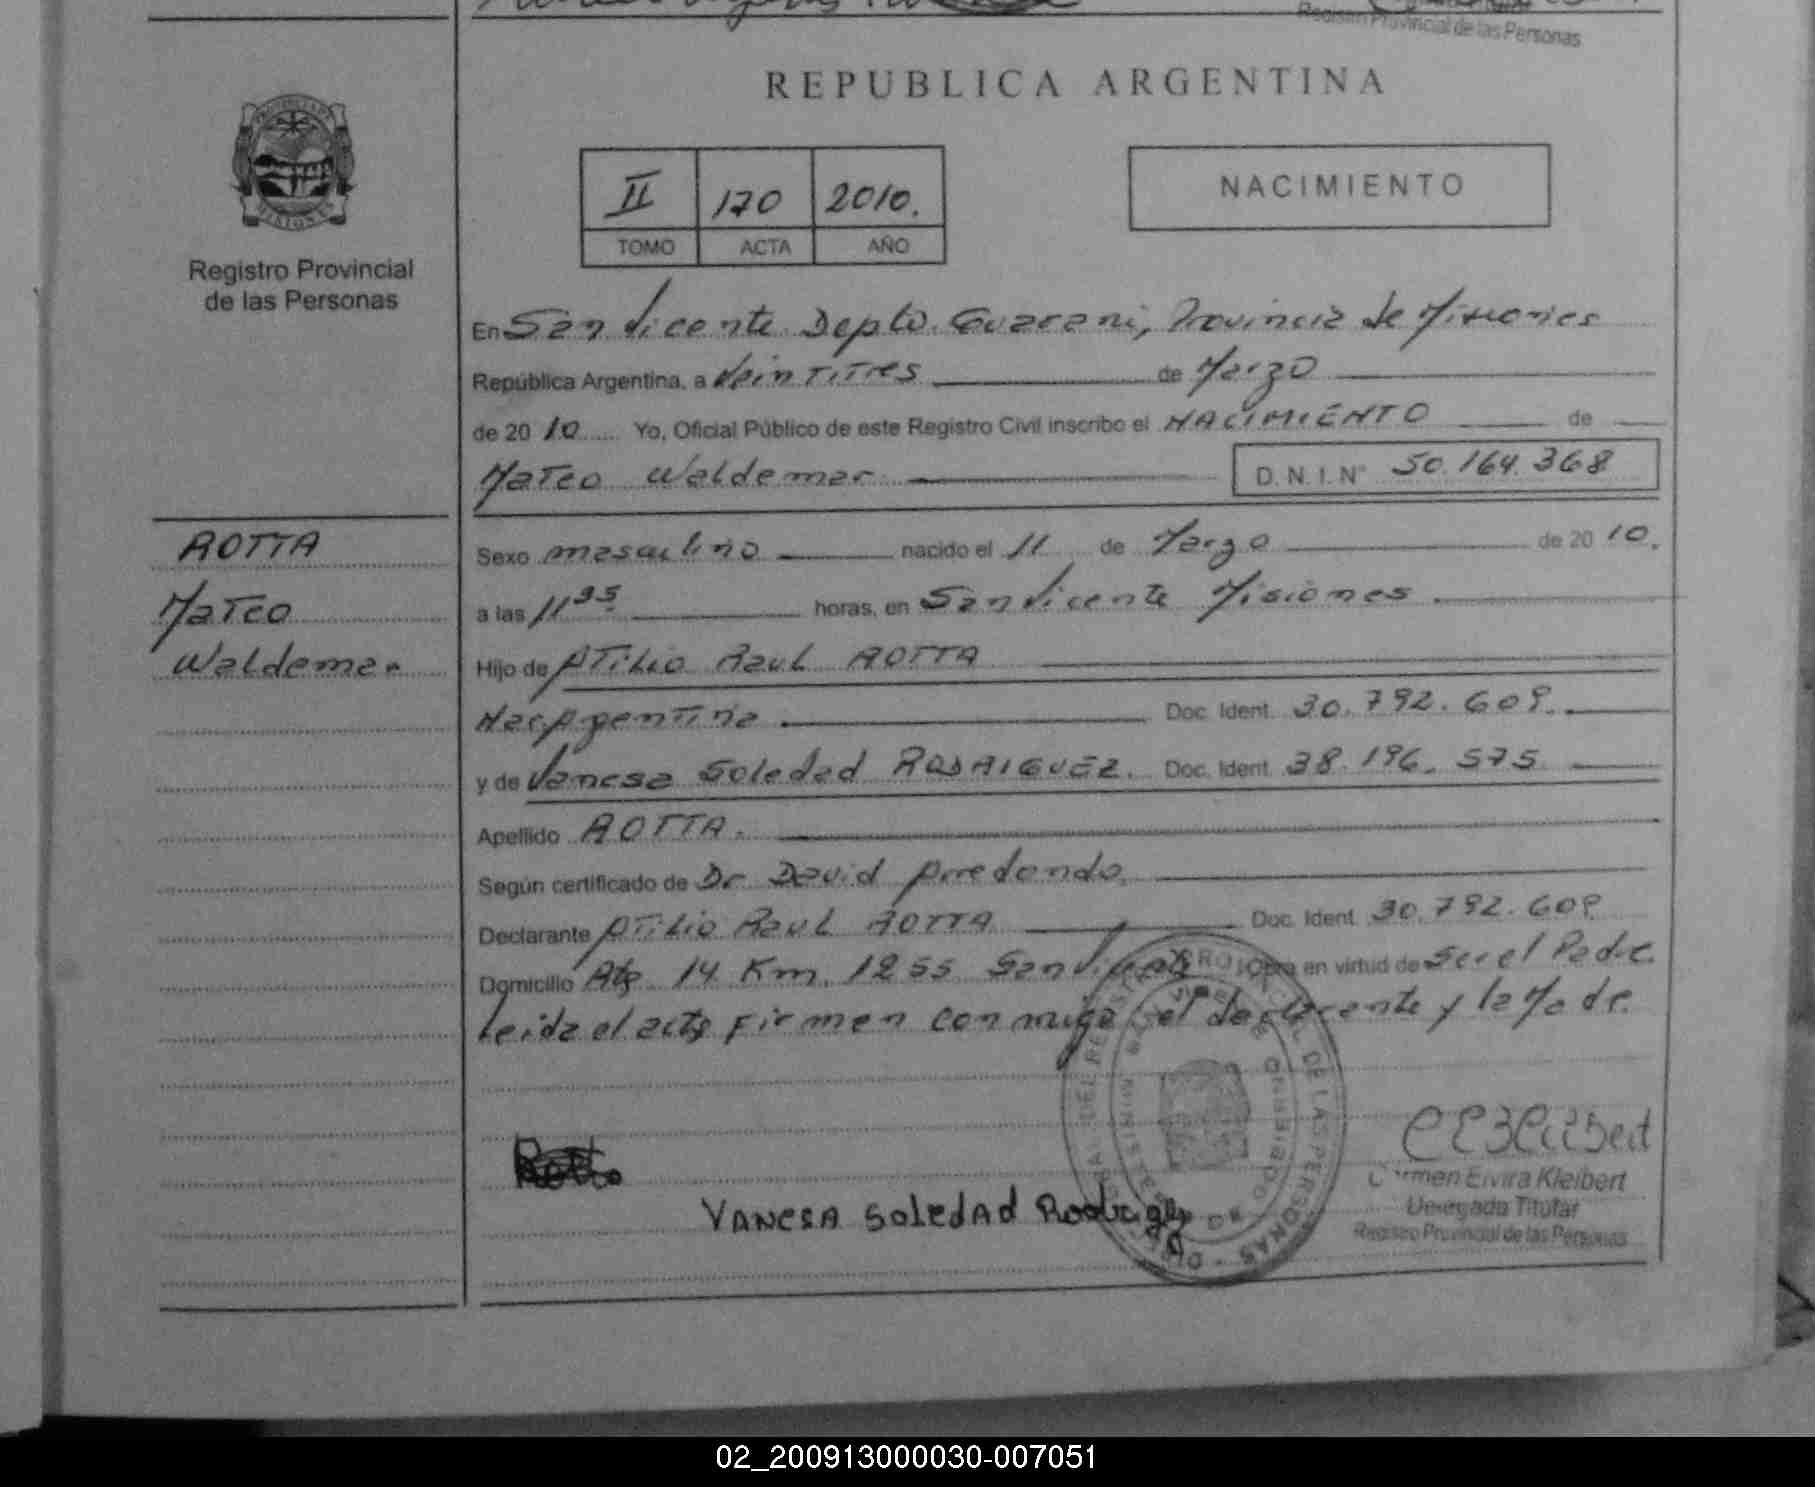 Registro Provincial de las Personas
REPUBLICA ARGENTINA
II 170 2010.
TOMO ACTA AÑO
NACIMIENTO
Registro Provincial
de las Personas
En San Vicente Depto. Guarani, Provincia de Misiones
República Argentina, a Veintitres de Marzo
de 2010 Yo, Oficial Público de este Registro Civil inscribo el NACIMIENTO de
Mateo Waldemar D.N.I. N° 50.164.368
ROTTA
Mateo
Waldemar
Sexo masculino nacido el 11 de Marzo de 2010.
a las 11 35 horas, en San Vicente Misiones
Hijo de Atilio Raul ROTTA
Nac Argentina Doc. Ident. 30.792.609.
y de Vanesa Soledad RODRIGUEZ. Doc. Ident. 38.196.575
Apellido ROTTA.
Según certificado de Dr David Arredondo.
Declarante Atilio Raul ROTTA Doc. Ident. 30.792.609
Domicilio 14 Km. 1255 San Vicente Obra en virtud de ser el Padre.
Leida el acta firman conmigo el declarante y la Madre.
Rotta
VANESA SOLEDAD Rodriguez
Carmen Elvira Kleibert
Delegada Titular
Registro Provincial de las Personas
02_200913000030-007051